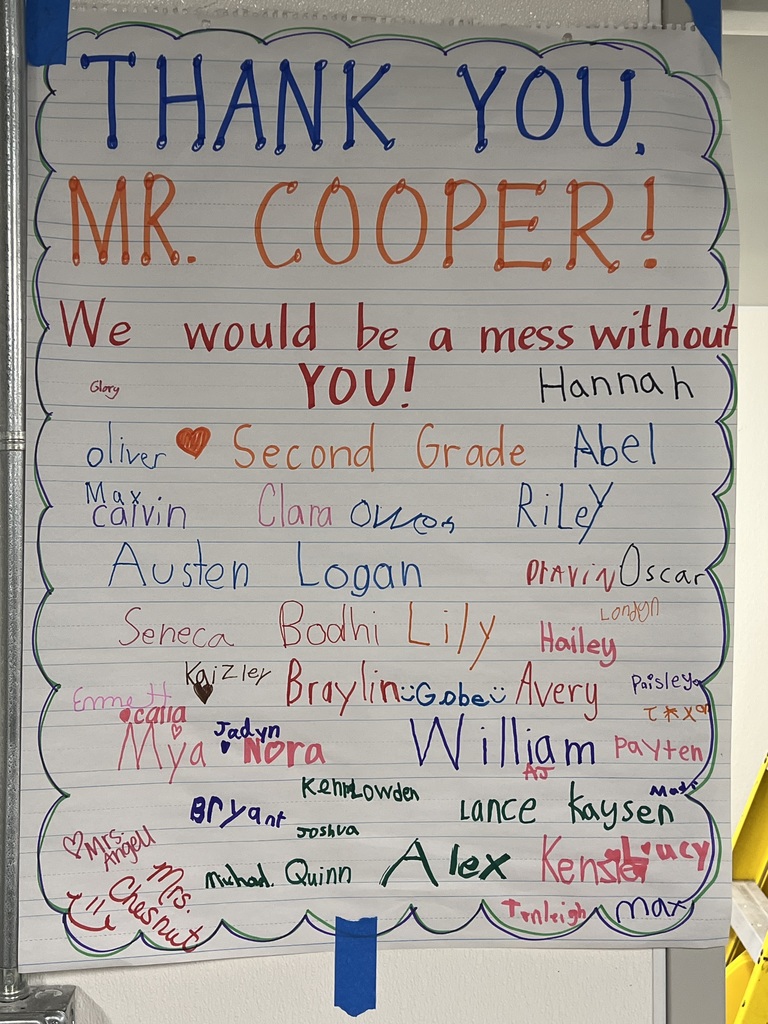 THANK YOU,
MR. COOPER!
We would be a mess without
YOU!
Glory Hannah
oliver Second Grade Abel
Max
calvin Clara Owen RiLeY
Austen Logan Oscar
Londyn
Seneca Bodhi Lily Hailey
Kaizley Braylin Gabe Avery Paisley
Emmett
calla
Mya Jadyn Nora William Payten
AJ
Lowden
Bryant Lance Kaysen
Joshua
Mrs. Angell
Michael. Quinn Alex Lucy
Mrs. Chesnut
Tenleigh Max